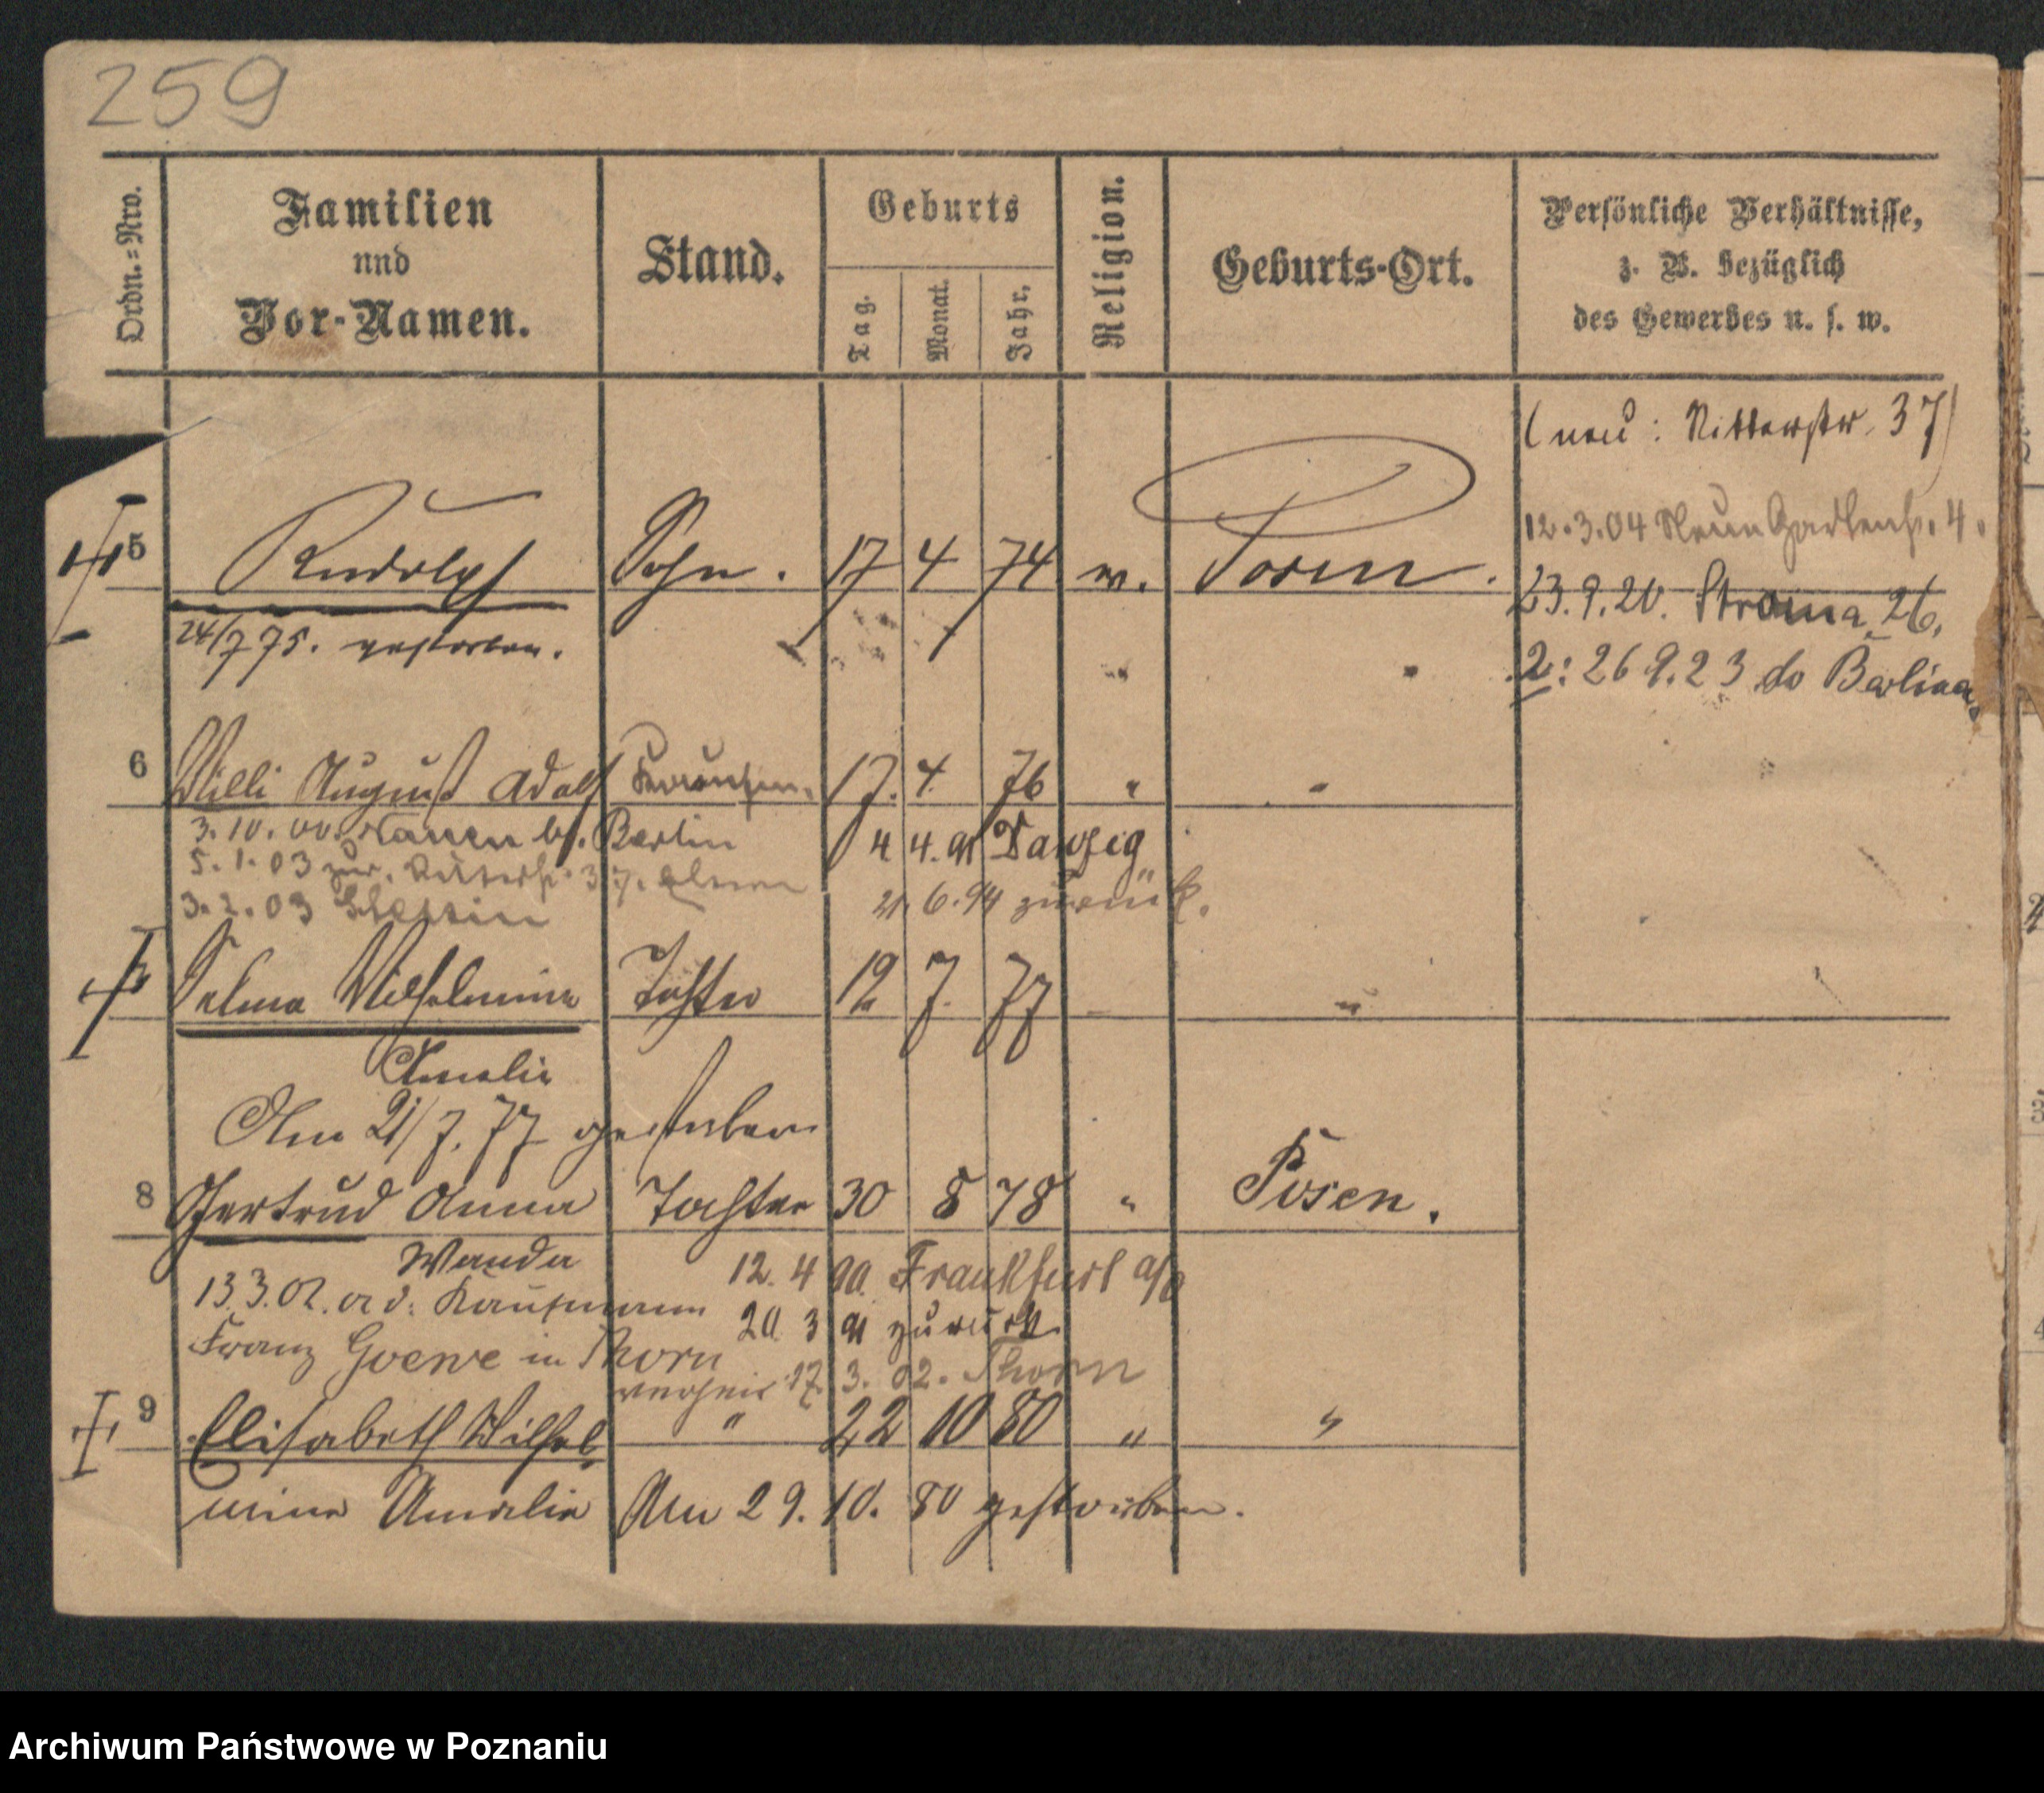 259
Ordn.=Nro.
Familien
und
Vor-Namen.
Stand.
Geburts
Tag.
Monat.
Jahr.
Religion.
Geburts-Ort.
Persönliche Verhältnisse,
z. B. bezüglich
des Gewerbes u. s. w.
(neu: Ritterstr. 37)
5 Rudolph Sohn. 17 4 74 Posen.
12.3.04 Gartenstr. 4.
24/7 75. gestorben.
23.9.20. Stroma 26.
26 9.23 do Berlina
6 Willi August Adolf 17. 4. 76 "
3.10.00. Nauen b/. Berlin 4 4. 91 Danzig
5.1.03 zur. Ritterstr. 37. 21. 6. 94 zurück.
3.2.03 Stettin
Selma Wilhelmine Tochter 12 7. 77 "
Amalie
Am 21/7. 77 gestorben
8 Gertrud Anna Tochter 30 8 78 " Posen.
Wanda 12. 4 90. Frankfurt a/O
13.3.02. Kaufmann 20 3 91 zurück
Franz in Thorn
17. 3. 02. Thorn
9 Elisabeth Wilhel " 22 10 80 " "
mine Amalie Am 29. 10. 80 gestorben.
Archiwum Państwowe w Poznaniu